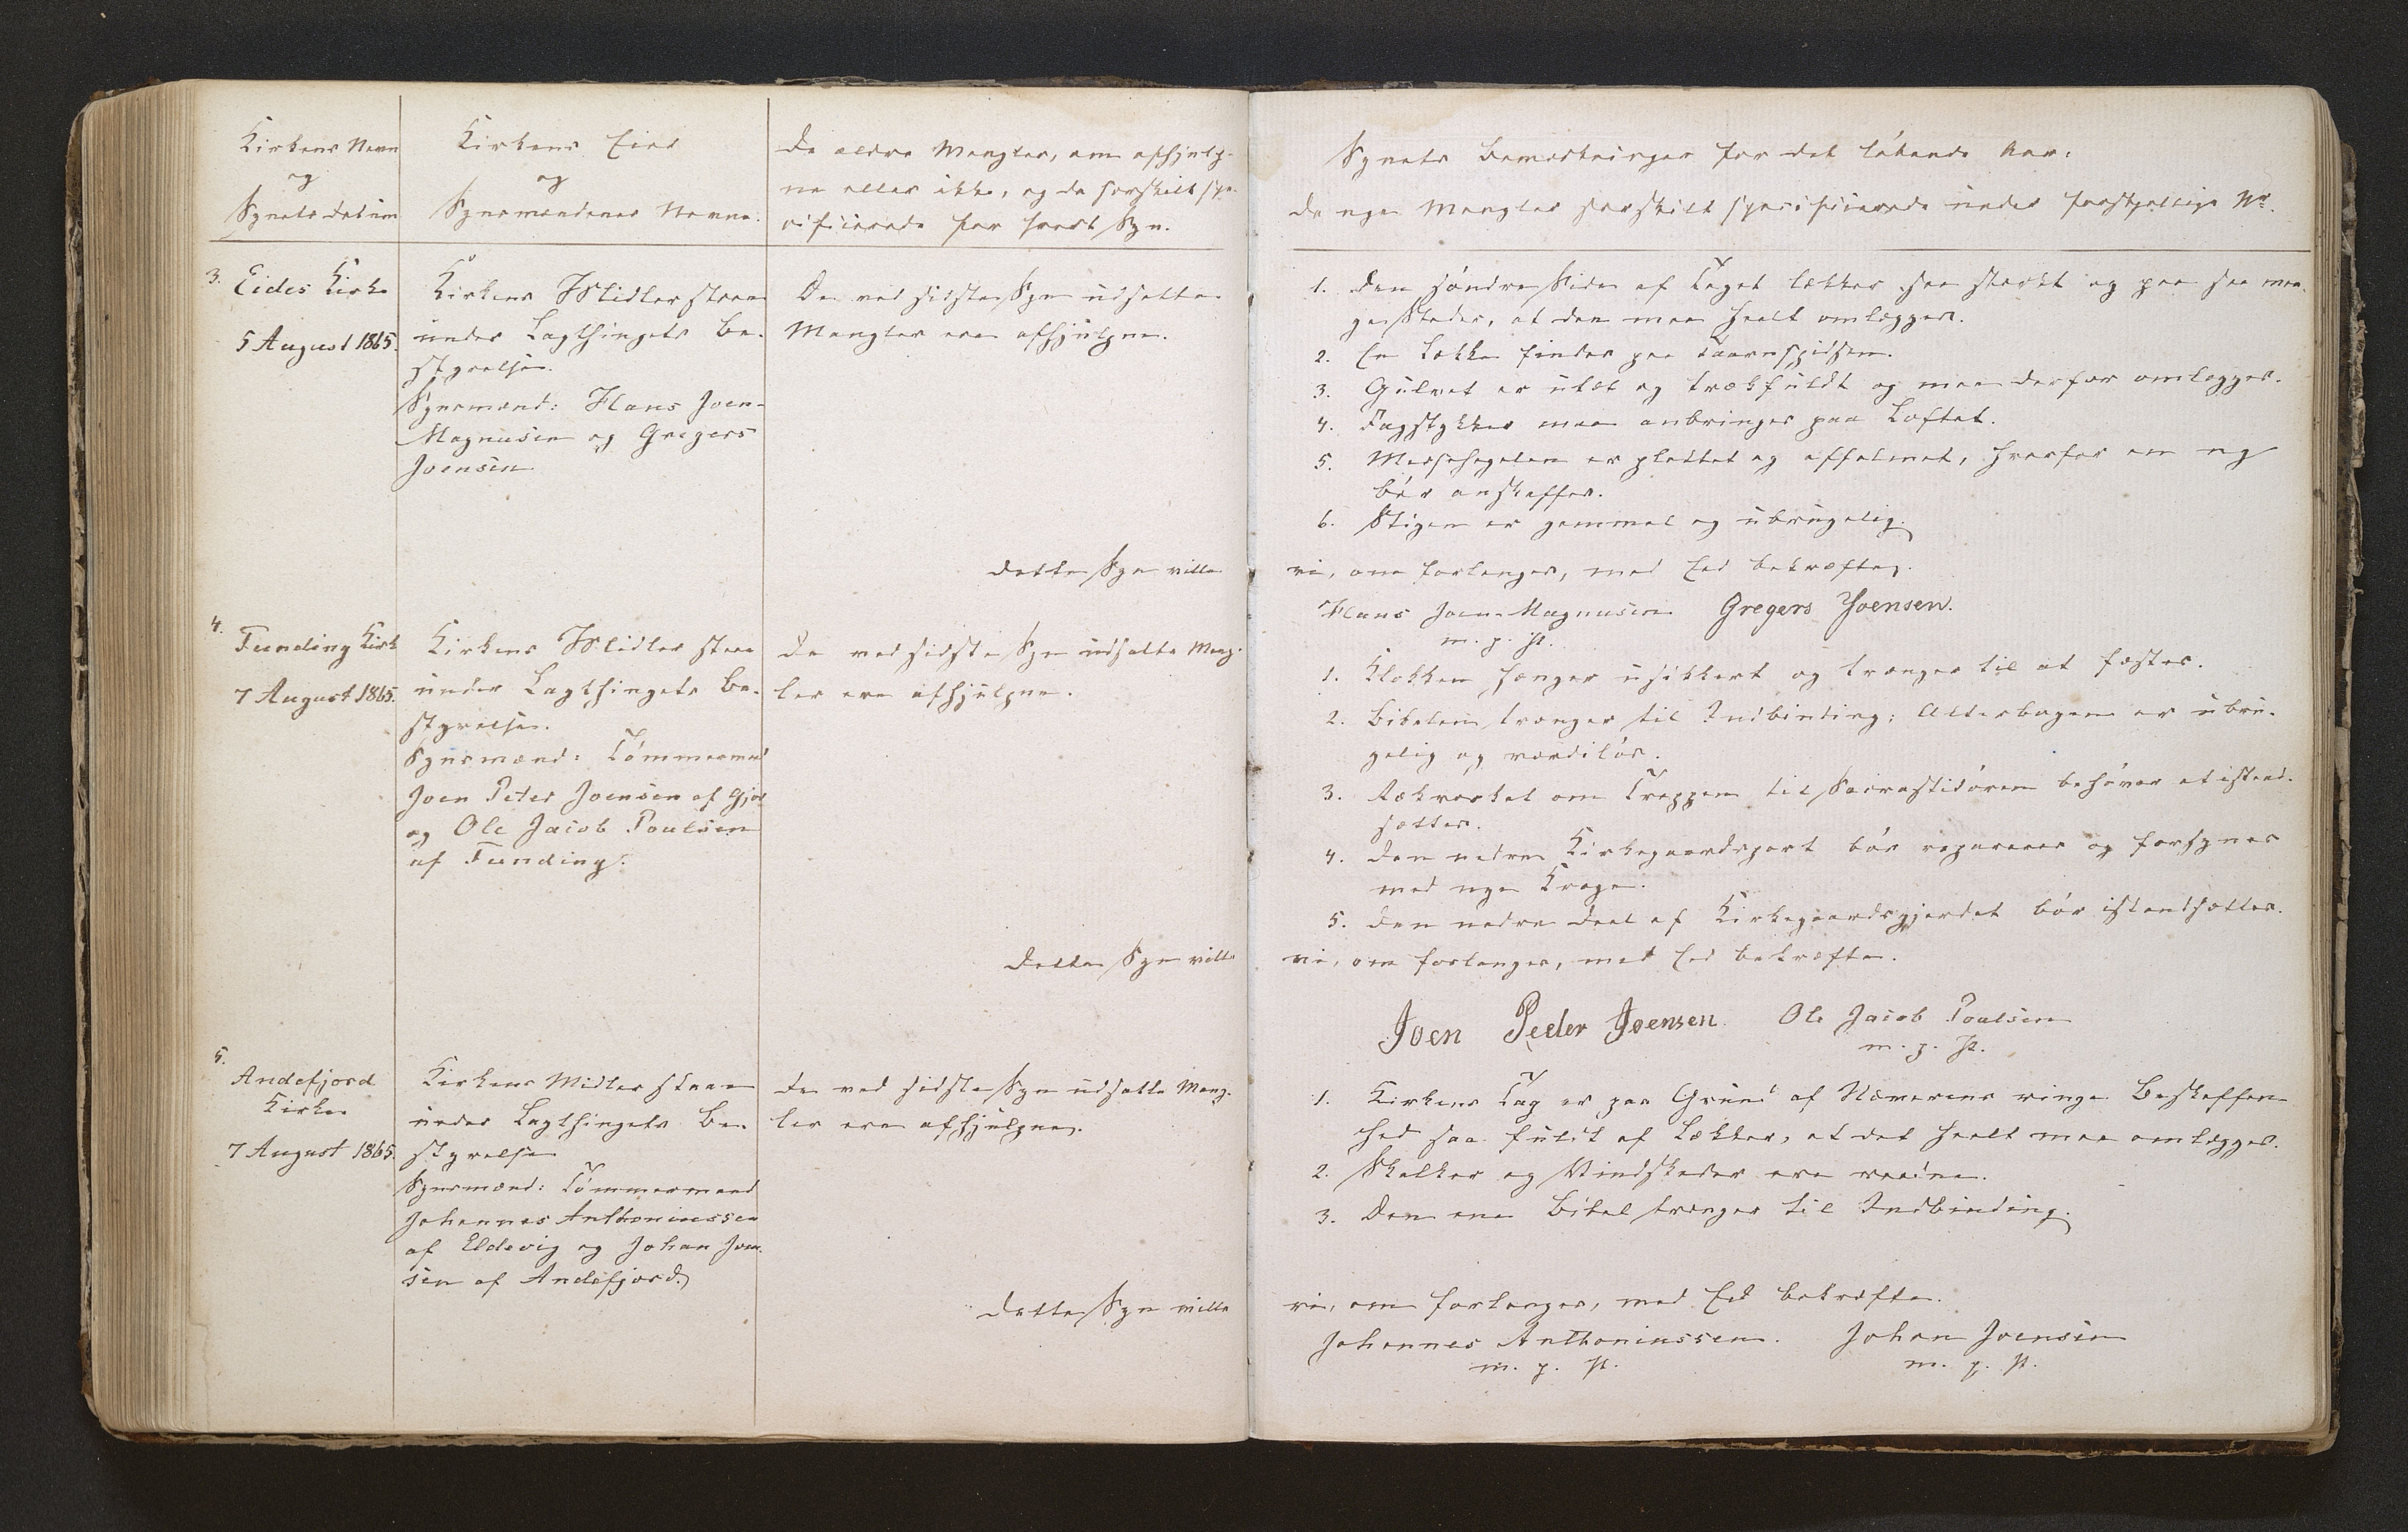 Kirkens Navn
og
Synets datum
Kirkens Eier
og
Synsmændenes Navne.
De ældre Mangler, om afhjulp-
ne eller ikke, og da særskilt spe-
cificerede for hvert Syn.
3. Eides Kirke
5 August 1865.
Kirkens Midler staae
under Lagthingets Be-
styrelse.
Synsmænd: Hans Joen-
Magnusen og Gregers
Joensen
De ved sidste Syn udsatte
Mangler ere afhjulpne.
Dette Syn ville
4.
Funding Kirke
7 August 1865.
Kirkens Midler staae
under Lagthingets Be-
styrelse.
Synsmænd: Tömmermd
Joen Peter Joensen af Gjov
og Ole Jacob Poulsen
af Funding.
De ved sidste Syn udsatte Mang-
ler ere afhjulpne.
Dette Syn ville
5.
Andefjord
Kirke
7 August 1865.
Kirkens Midler staae
under Lagthingets Be-
styrelse
Synsmænd: Tömmermand
Johannes Anthoniussen
af Eldevig og Johan Joen-
sen af Andefjord.
De ved sidste Syn udsatte Mang-
ler ere afhjulpne.
Dette Syn ville
Synets Bemærkninger for det löbende Aar:
De nye Mangler særskilt specificerede under forskjellige No.
1. Den söndre Side af Taget lækker saa stærkt og paa saa man-
ge Steder, at den maa heelt omlægges.
2. En Lække findes paa Taarnspidsen.
3. Gulvet er utæt og trækfuldt og maa derfor omlægges.
4. Fagstykker maa anbringes paa Loftet.
5. Messehagelen er plettet og affalmet, hvorfor en ny
bör anskaffes.
6. Stigen er gammel og ubrugelig.
vi, om forlanges, med Eed bekræfte.
Hans Joen-Magnusen Gregers Joensen.
m. p. P.
1. Klokken hænger usikkert og trænger til at fæstes.
2. Bibelen trænger til Indbinding; Alterbogen er ubru-
gelig og værdilös.
3. Rækværket om Trappen til Sacrastidören behöver at istand-
sættes.
4. Den nedre Kirkegaardsport bör repareres og forsynes
med nye Kroge.
5. Den nedre Deel af Kirkegaardsgjerdet bör istandsættes.
vi, om forlanges, med Eed bekræfte.
Joen Peder Joensen. Ole Jacob Poulsen
m. p. P.
1. Kirkens Tag er paa Grund af Næverens ringe Beskaffen-
hed saa fuldt af Lækker, at det heelt maa omlægges.
2. Skalker og Vindskeder ere raadne.
3. Den ene Bibel trænger til Indbinding.
vi, om forlanges, med Eed bekræfte.
Johannes Anthoniussen. Johan Joensen
m. p. P. m. p. P.